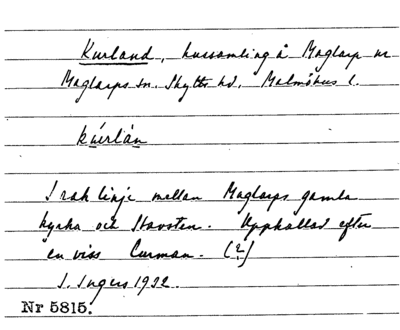 Kurland, hussamling å Maglarp nr
Maglarps sn. Skytts hd. Malmöhus l.
kúrlàn
I rak linje mellan Maglarps gamla
kyrka och Stavsten. Uppkallad efter
en viss Curman. (?)
S. Ingers 1932.
Nr 5815.